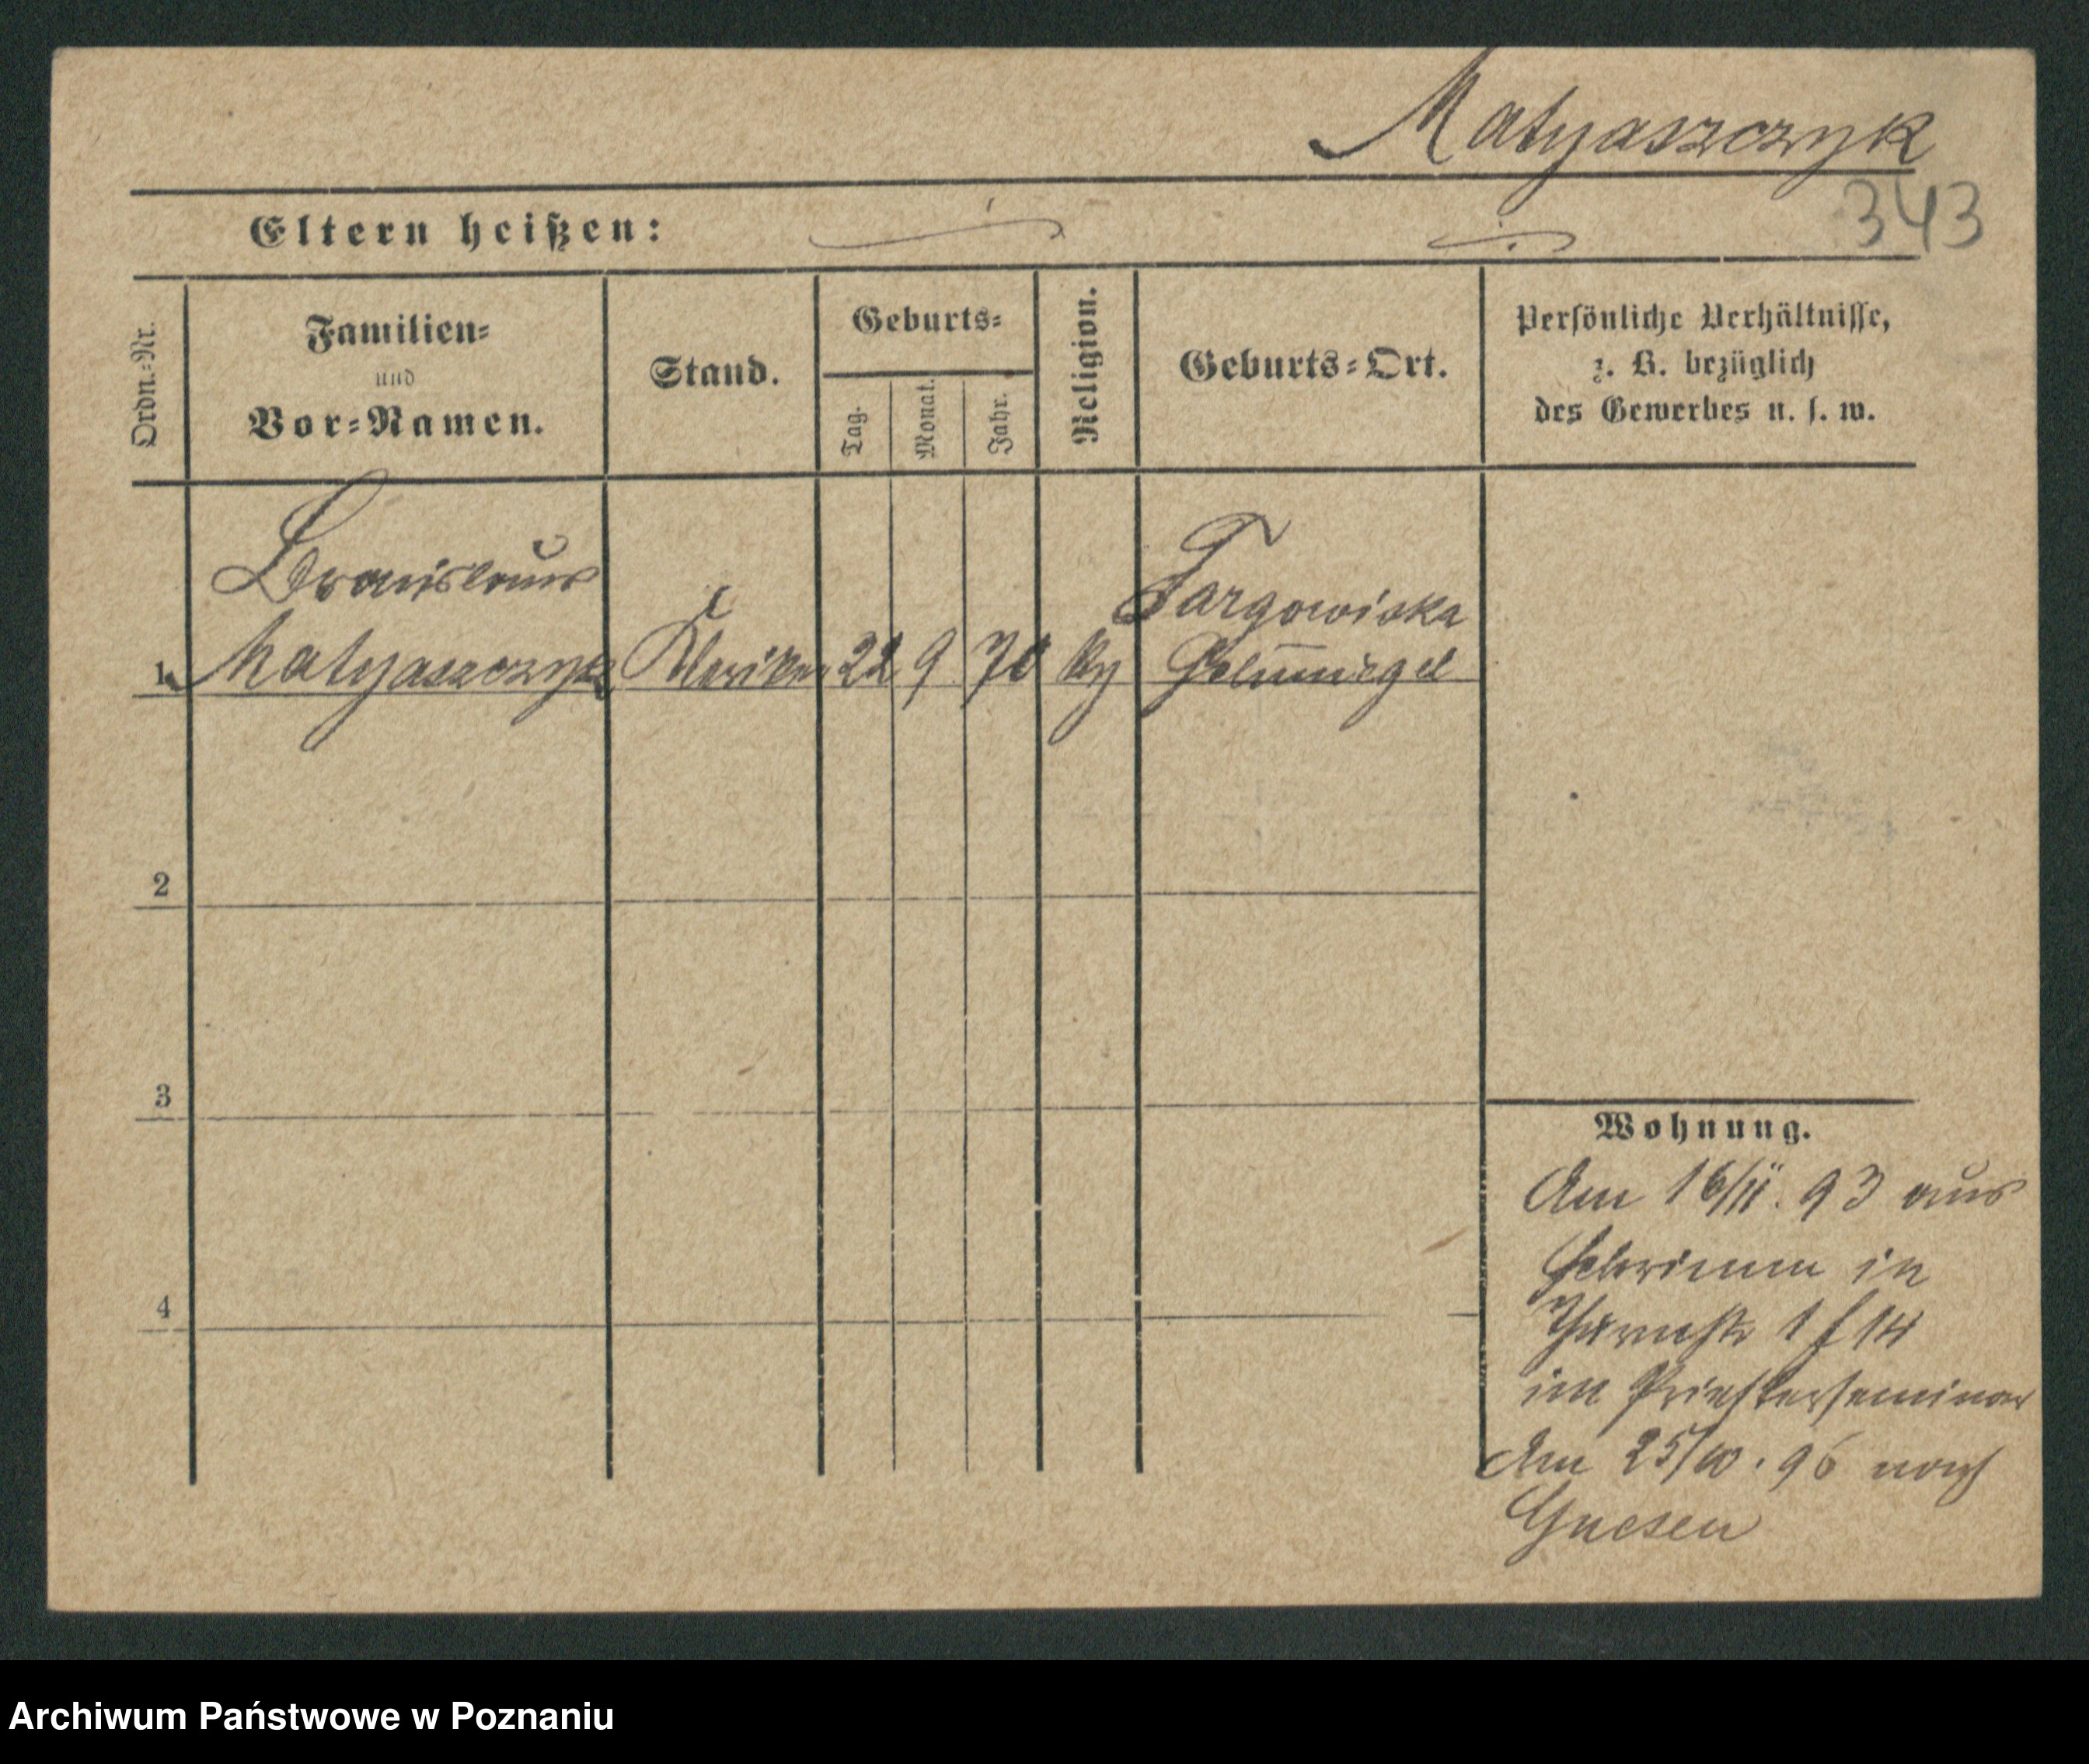 Matyaszczyk
343
Eltern heißen:
Ordn.-Nr.
Familien-
und
Vor-Namen.
Stand.
Geburts-
Tag.
Monat.
Jahr.
Religion.
Geburts-Ort.
Persönliche Verhältnisse,
z. B. bezüglich
des Gewerbes u. s. w.
Bronislaus Targowiska
1 Matyaszczyk Kleriker 22 9 70 Schmiegel
2
3
4
Wohnung.
Am 16/II. 93 aus
Schrimm in
1 / 14
im Priesterseminar
Am 25/10. 96 nach
Gnesen
Archiwum Państwowe w Poznaniu